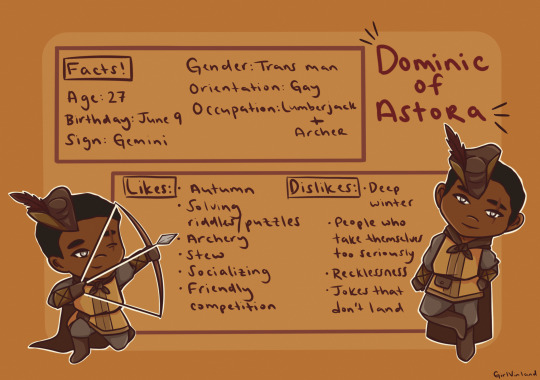 Dominic
of
Astora
Facts!
Age: 27
Birthday: June 9
Sign: Gemini
Gender: Trans man
Orientation: Gay
Occupation: Lumberjack
+
Archer
Likes:
• Autumn
• Solving
riddles/puzzles
• Archery
• Stew
• Socializing
• Friendly
competition
Dislikes:
• Deep
winter
• People who
take themselves
too seriously
• Recklessness
• Jokes that
don't land
GurlVinland